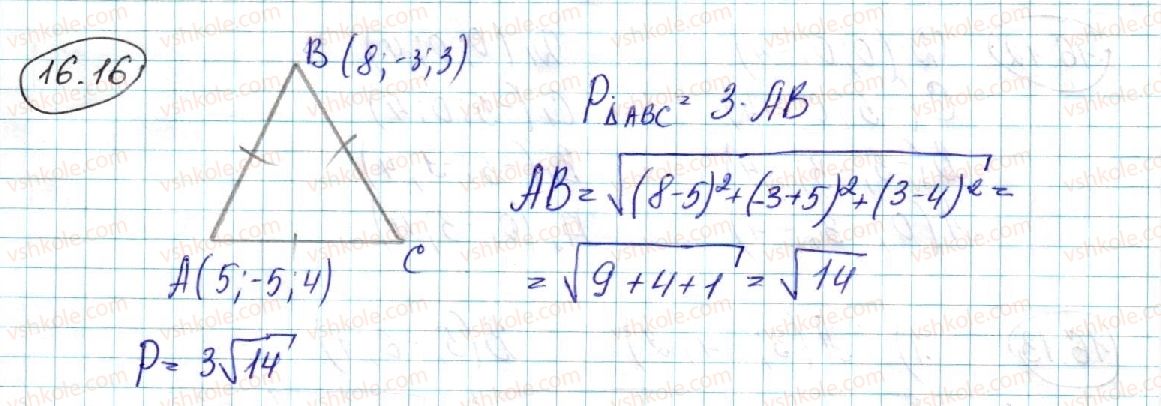 16.16
B (8; -3; 3)
A (5; -5; 4)
C
P△ABC = 3·AB
AB = √((8-5)²+(-3+5)²+(3-4)²) =
= √(9+4+1) = √14
P = 3√14
vshkole.com